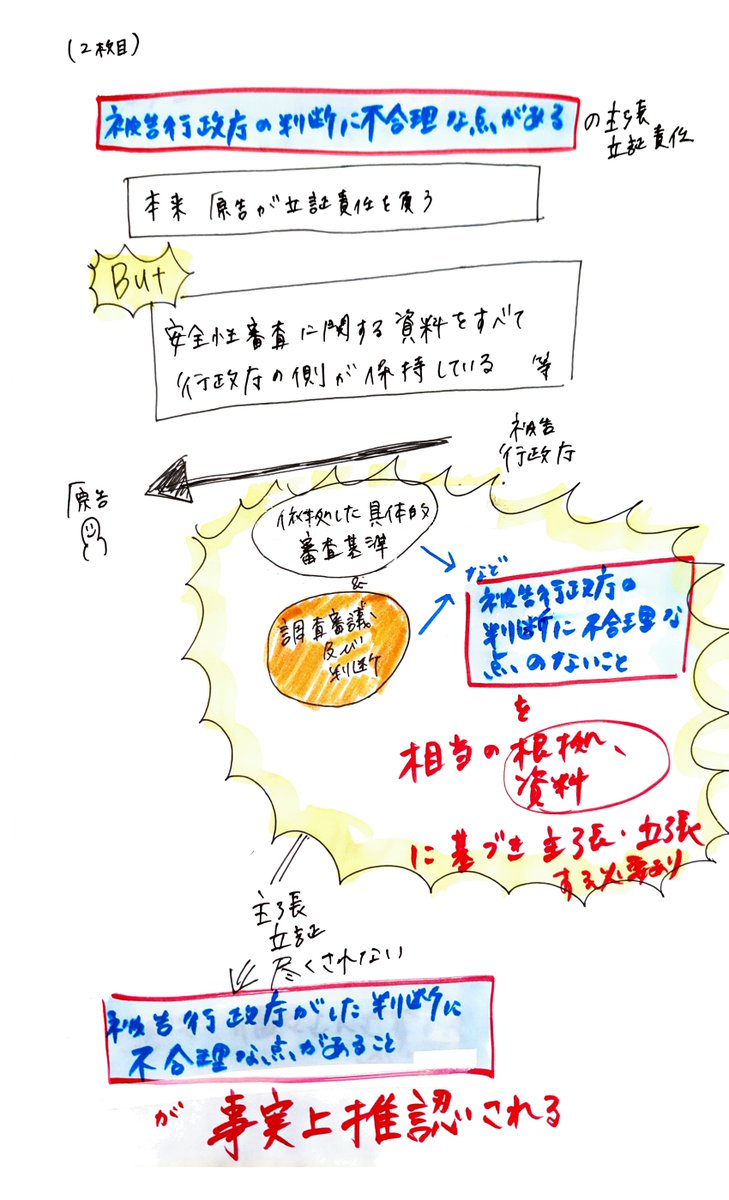 (2枚目)
被告行政庁の判断に不合理な点がある の主張
立証責任
本来 原告が立証責任を負う
But
安全性審査に関する資料をすべて
行政庁の側が保持している 等
被告
行政庁
原告
依拠した具体的
審査基準
&
調査審議、
及び
判断
など
被告行政庁の
判断に不合理な
点のないこと
を
相当の根拠、
資料
に基づき主張・立張
する必要あり
主張
立証
尽くされない
被告行政庁がした判断に
不合理な点があること
が 事実上推認される